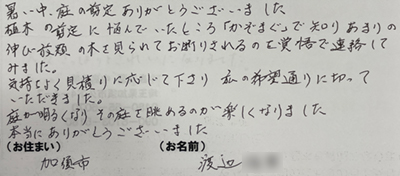 暑い中、庭の剪定ありがとうございました
植木の剪定に悩んでいたところ「かぞまぐ」で知りあまりの
伸び放題の木を見られてお断りされるのを覚悟で連絡して
みました。
気持ちよく見積りに応じて下さり 私の希望通りに切って
いただきました。
庭が明るくなり その庭を眺めるのが楽しくなりました
本当にありがとうございました
(お住まい) (お名前)
加須市 渡辺